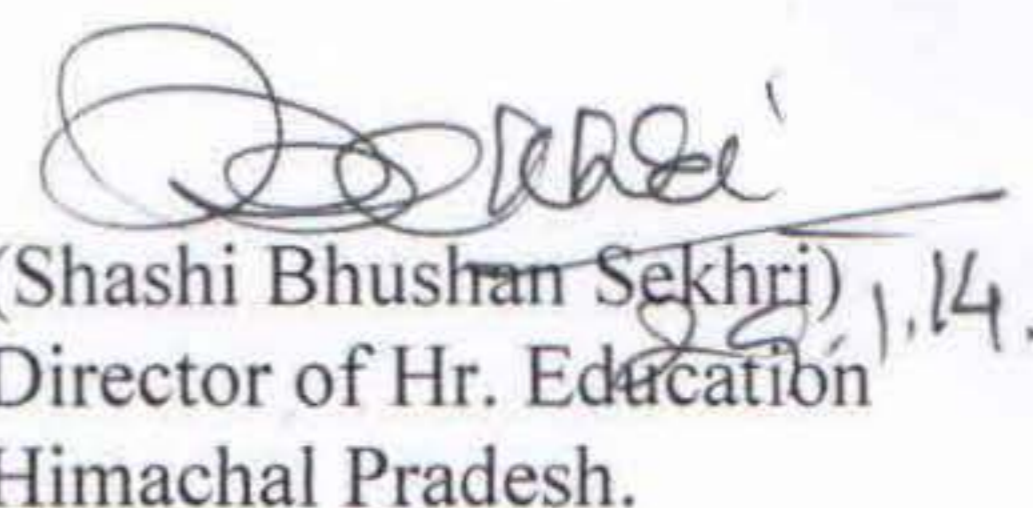 (Shashi Bhushan Sekhri)
Director of Hr. Education
Himachal Pradesh.